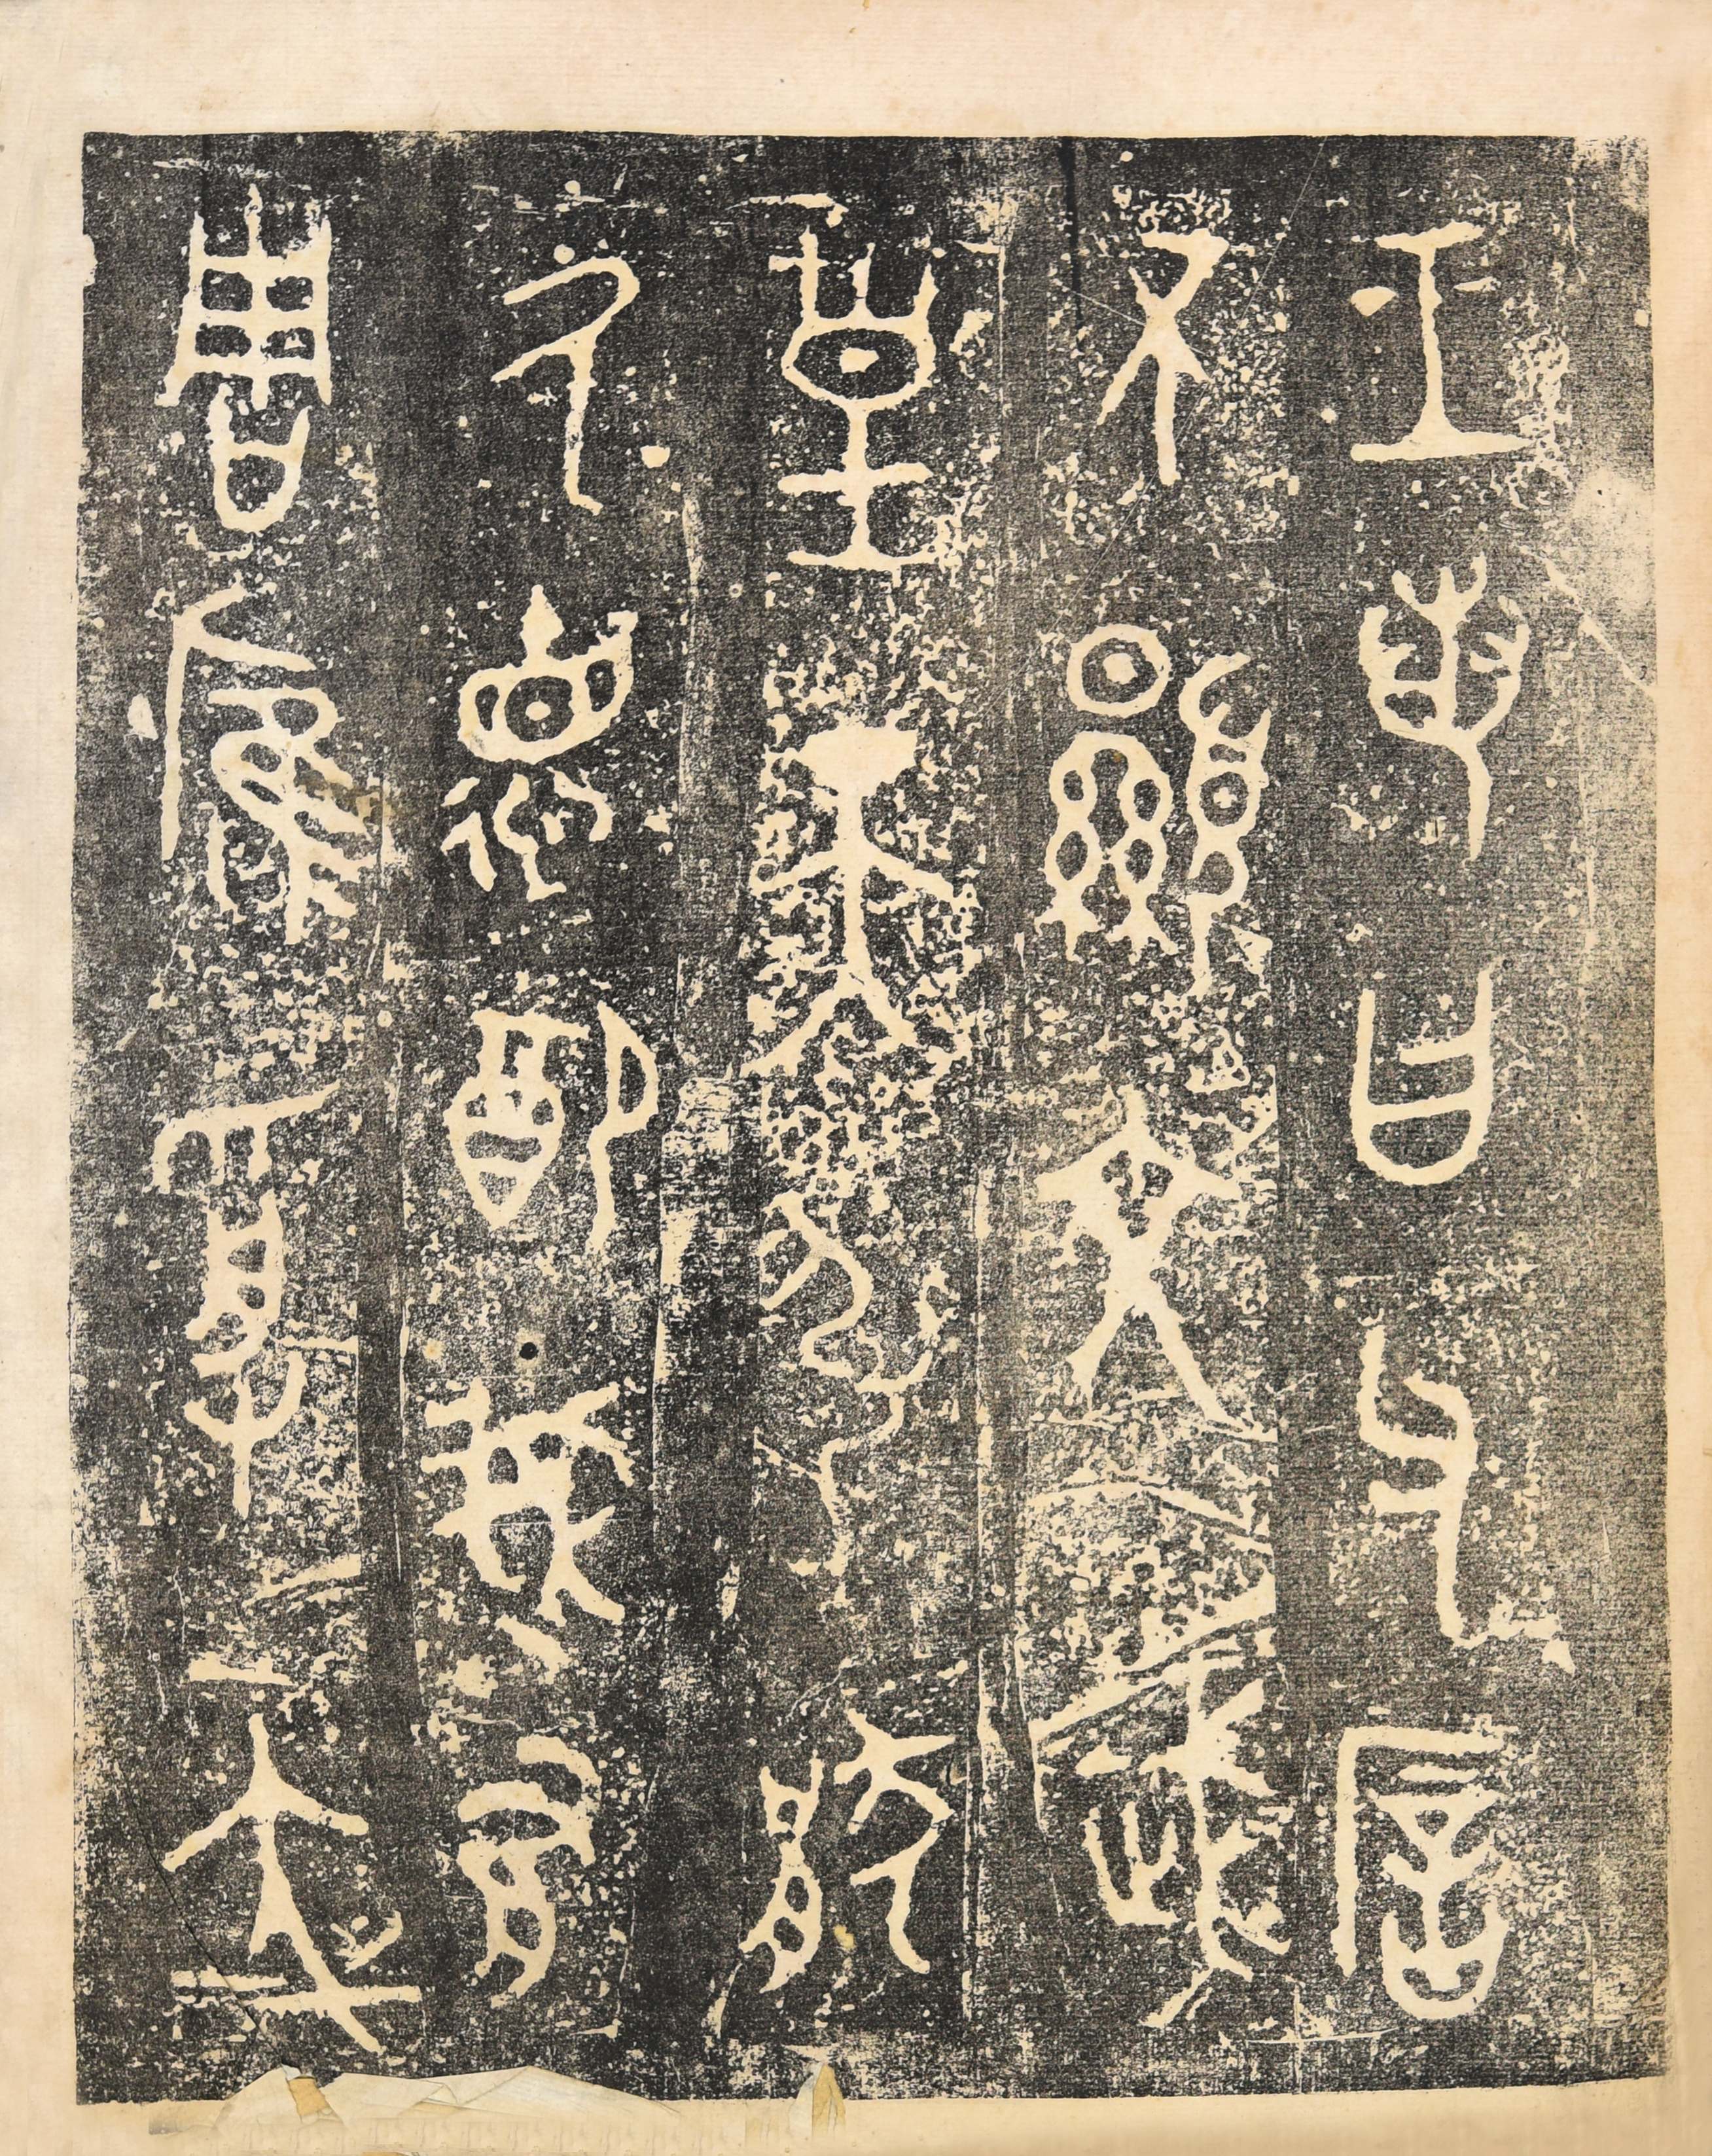 王若曰父厝
不顯文武
皇天引猒
厥德配我有
周雁受大命